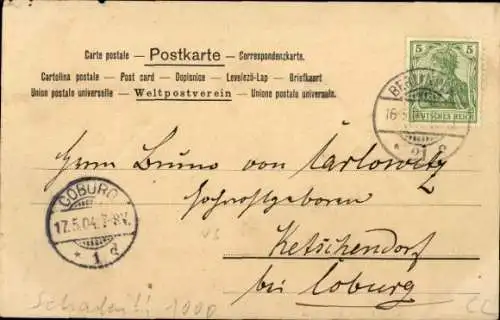 Carte postale — Postkarte — Correspondenzkarte.
Cartolina postale — Post card — Dopisnice — Levelező-Lap — Briefkaart
Union postale universelle — Weltpostverein — Unione postale universale.
5 5
DEUTSCHES REICH
BERLIN
Herrn Bruno von Carlowitz
Hochwohlgeboren
Ketschendorf
bei Coburg
COBURG
17.5.04. 7-8V.
* 1 d
1000